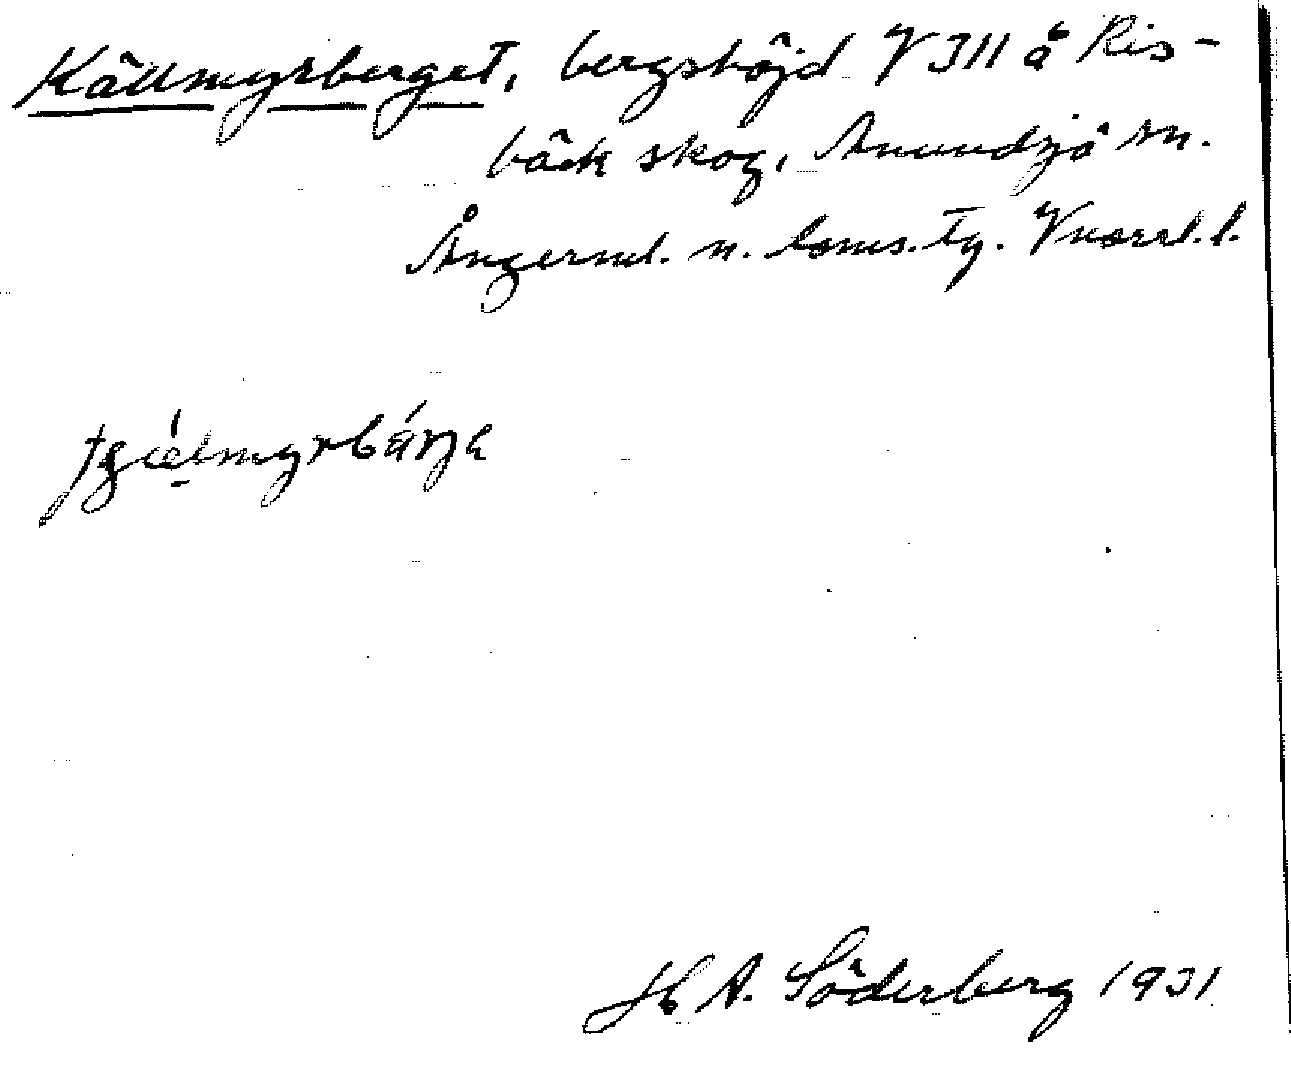 Källmyrberget, bergshöjd V J11 å Ris-
bäck skog, Anundsjö sn.
Ångerml. n. doms. tg. Vnorrl. l.
H A. Söderberg 1931